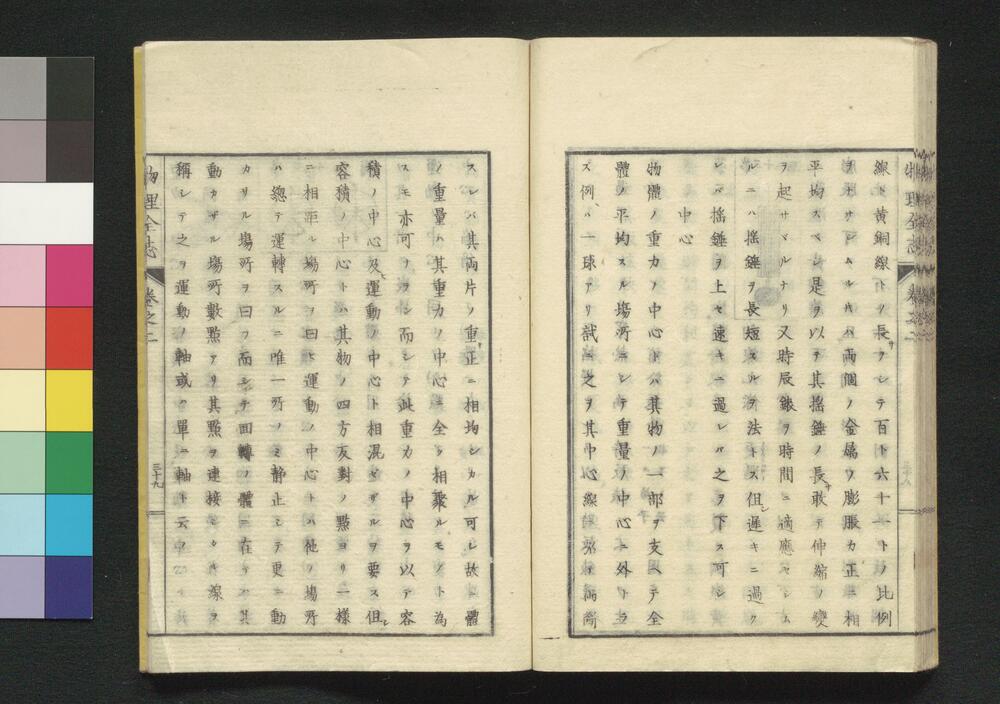 線ト黄銅線トノ長サヲシテ百ト六十一トノ比例
ヲナサシムルキハ両個ノ金属ノ膨脹力正ニ相
平均スベシ是ヲ以テ其揺錘ノ長サ敢テ伸縮ノ變
ヲ起サヾルナリ又時辰錶ヲ時間ニ適應セシム
ルニハ揺錘ヲ長短スルヲ法トス但シ遅キニ過ク
レバ揺錘ヲ上セ速キニ過レバ之ヲ下ス可シ
中心
物體ノ重力ノ中心トハ其物ノ一部ヲ支ヘテ全
體ノ平均スル塲所ニシテ重量ノ中心ニ外ナラ
ズ例ハ一球アリ試ニ之ヲ其中心線
スレバ其両片ノ重サ正ニ相均シカル可シ故ニ體
ノ重量ハ其重力ノ中心ニ全ク相聚ルモノト為
スモ亦可ナラン而シテ此重力ノ中心ヲ以テ容
積ノ中心及ヒ運動ノ中心ト相混セザルヲ要ス但シ
容積ノ中心トハ其物ノ四方反對ノ點ヨリ一様
ニ相距ル塲所ヲ曰ヒ運動ノ中心トハ他ノ塲所
ハ總テ運轉スルニ唯一所ノミ静止シテ更ニ動
カサル塲所ヲ曰フ而シテ回轉ノ體ニ在テハ其
動カザル塲所數點アリ其點ヲ連接セシキ線ヲ
稱シテ之ヲ運動ノ軸或ハ單ニ軸ト云
物理全志
巻之二
三十九